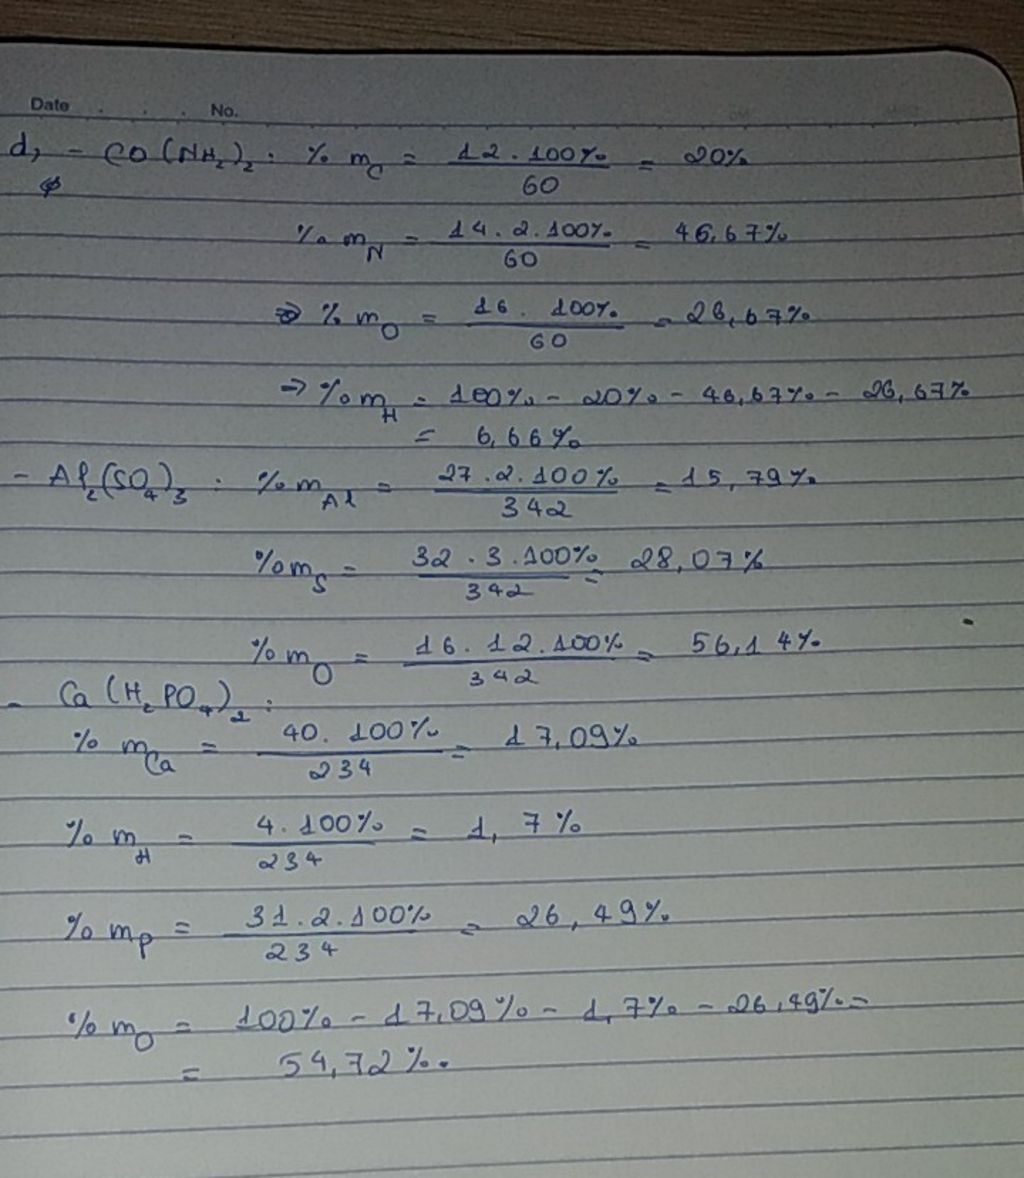 Date . . . No.
d, - CO(NH₂)₂ : % m_C = 12.100% / 60 = 20%
% m_N = 14.2.100% / 60 = 46,67%
=> % m_O = 16. 100% / 60 = 26,67%
=> % m_H = 100% - 20% - 46,67% - 26,67%
= 6,66%
- Al₂(SO₄)₃ : % m_Al = 27.2.100% / 342 = 15,79%
% m_S = 32.3.100% / 342 = 28,07%
% m_O = 16.12.100% / 342 = 56,14%
- Ca(H₂PO₄)₂ :
% m_Ca = 40. 100% / 234 = 17,09%
% m_H = 4.100% / 234 = 1,7%
% m_P = 31.2.100% / 234 = 26,49%
% m_O = 100% - 17,09% - 1,7% - 26,49% =
= 54,72%.